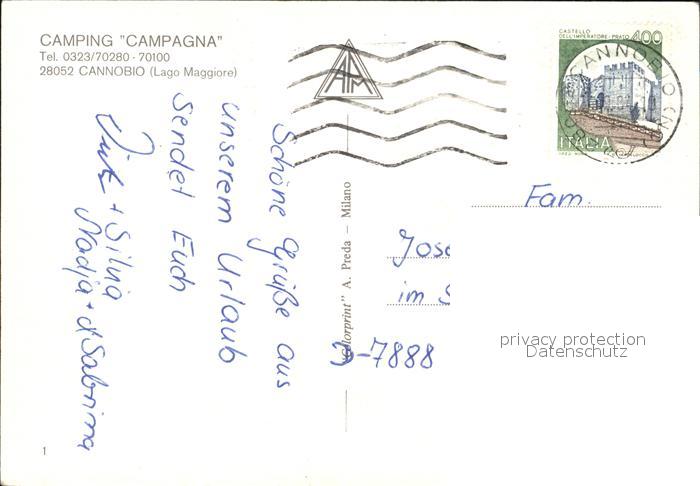 CAMPING "CAMPAGNA"
Tel. 0323/70280 - 70100
28052 CANNOBIO (Lago Maggiore)
Schöne Grüße aus
unserem Urlaub
sendet Euch
+ Silvia
Nadja + Sabrina
1
"Colorprint" A. Preda – Milano
ATM
CASTELLO
DELL'IMPERATORE - PRATO
400
ITALIA
CANNOBIO (NO)
Fam.
Jose
im S
D-7888
privacy protection
Datenschutz